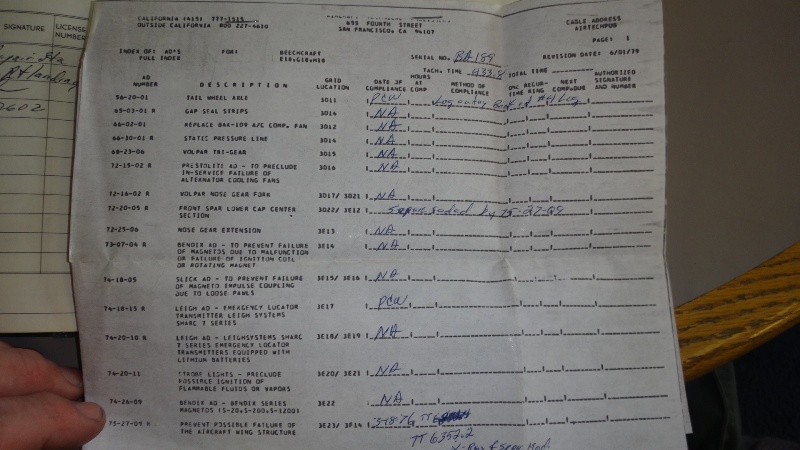 SIGNATURE
LICENSE
NUM
CALIFORNIA (415) 777-1515
OUTSIDE CALIFORNIA 800 227-4610
655 FOURTH STREET
SAN FRANCISCO, CA 94107
CABLE ADDRESS
AIRTECHPUB
PAGE: 1
INDEX OF: AD'S FOR: BEECHCRAFT SERIAL NO. BA 189 REVISION DATE: 6/01/79
FULL INDEX E18:G18:H18
TACH. TIME 433.8 TOTAL TIME
AD NUMBER DESCRIPTION GRID LOCATION DATE OF COMPLIANCE HOURS AT COMP METHOD OF COMPLIANCE ONE TIME RECUR- RING NEXT COMP.DUE AUTHORIZED SIGNATURE AND NUMBER
56-20-01 TAIL WHEEL AXLE 3D11 PCW Log
65-03-01 R GAP SEAL STRIPS 3D14 NA
66-02-01 REPLACE BAA-109 A/C COMP. FAN 3D12 NA
66-30-01 R STATIC PRESSURE LINE 3D14 NA
68-23-06 VOLPAR TRI-GEAR 3D15 NA
72-15-02 R PRESTOLITE AD - TO PRECLUDE 3D16 NA
IN-SERVICE FAILURE OF
ALTERNATOR COOLING FANS
72-16-02 R VOLPAR NOSE GEAR FORK 3D17/ 3D21 NA
72-20-05 R FRONT SPAR LOWER CAP CENTER 3D22/ 3E12 superseded by 75-27-09
SECTION
72-25-06 NOSE GEAR EXTENSION 3E13 NA
73-07-04 R BENDIX AD - TO PREVENT FAILURE 3E14 NA
OF MAGNETOS DUE TO MALFUNCTION
OR FAILURE OF IGNITION COIL
OR ROTATING MAGNET
74-18-05 SLICK AD - TO PREVENT FAILURE 3E15/ 3E16 NA
OF MAGNETO IMPULSE COUPLING
DUE TO LOOSE PAWLS
74-18-15 R LEIGH AD - EMERGENCY LOCATOR 3E17 PCW
TRANSMITTER LEIGH SYSTEMS
SHARC 7 SERIES
74-20-10 R LEIGH AD - LEIGHSYSTEMS SHARC 3E18/ 3E19 NA
7 SERIES EMERGENCY LOCATOR
TRANSMITTERS EQUIPPED WITH
LITHIUM BATTERIES
74-20-11 STROBE LIGHTS - PRECLUDE 3E20/ 3E21 NA
POSSIBLE IGNITION OF
FLAMMABLE FLUIDS OR VAPORS
74-26-09 BENDIX AD - BENDIX SERIES 3E22 NA
MAGNETOS (S-20;S-200;S-1200)
75-27-09 R PREVENT POSSIBLE FAILURE OF 3E23/ 3F14 TT
THE AIRCRAFT WING STRUCTURE
TT 6352.2
X-Ray & Spar Mod.